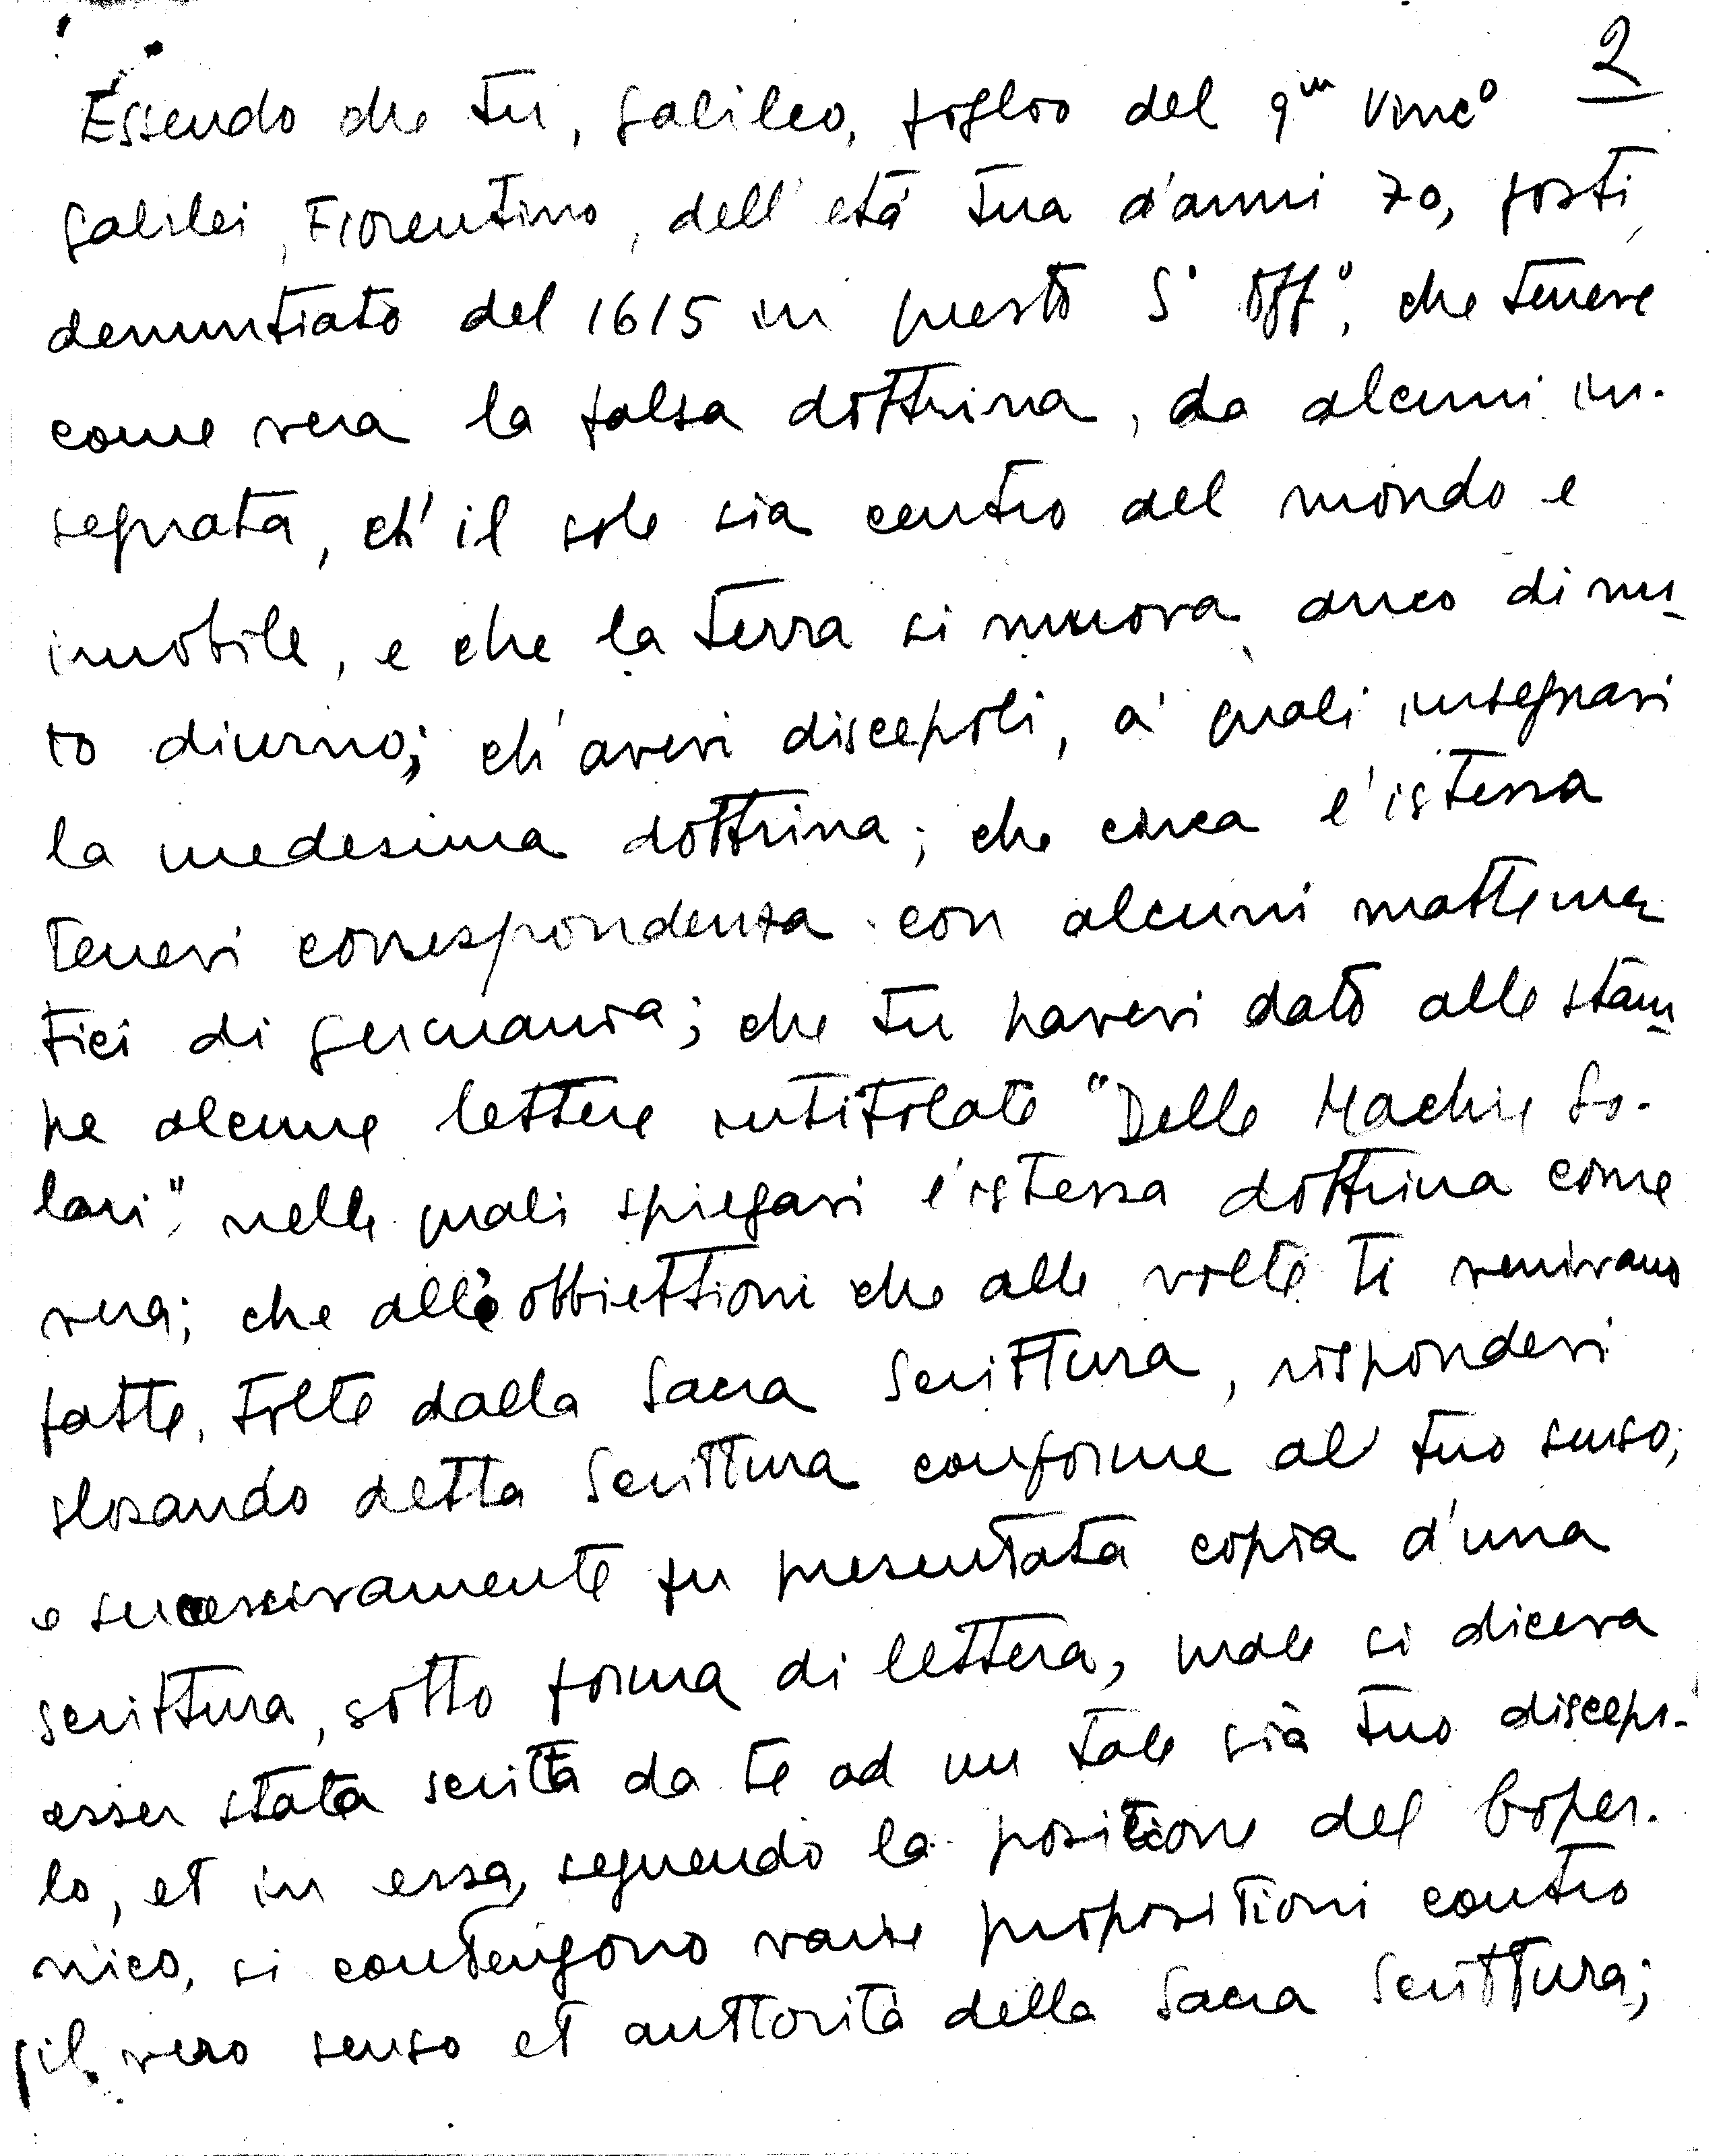 2
Essendo che tu, Galileo, figlio del qm Vinc°
Galilei, Fiorentino, dell'età tua d'anni 70, fosti
denuntiato del 1615 in questo S° Off°, che tenevi
come vera la falsa dottrina, da alcuni in-
segnata, ch'il sole sia centro del mondo e
imobile, e che la terra si muova anco di mo
to diurno; ch'avevi discepoli, a' quali insegnavi
la medesima dottrina; che circa l'istessa
tenevi correspondenza con alcuni mattema
tici di Germania; che tu havevi dato alle stam
pe alcune lettere intitolate "Delle Machie So-
lari", nelle quali spiegavi l'istessa dottrina come
vera; che all'obbiettioni che alle volte ti venivano
fatte, tolte dalla Sacra Scrittura, rispondevi
glosando detta Scrittura conforme al tuo senso;
e successivamente fu presentata copia d'una
scrittura, sotto forma di lettera, quale si diceva
esser stata scritta da te ad un tale già tuo discepo-
lo, et in essa, seguendo la positione del Coper-
nico, si contengono varie propositioni contro
il vero senso et auttorità della Sacra Scrittura;